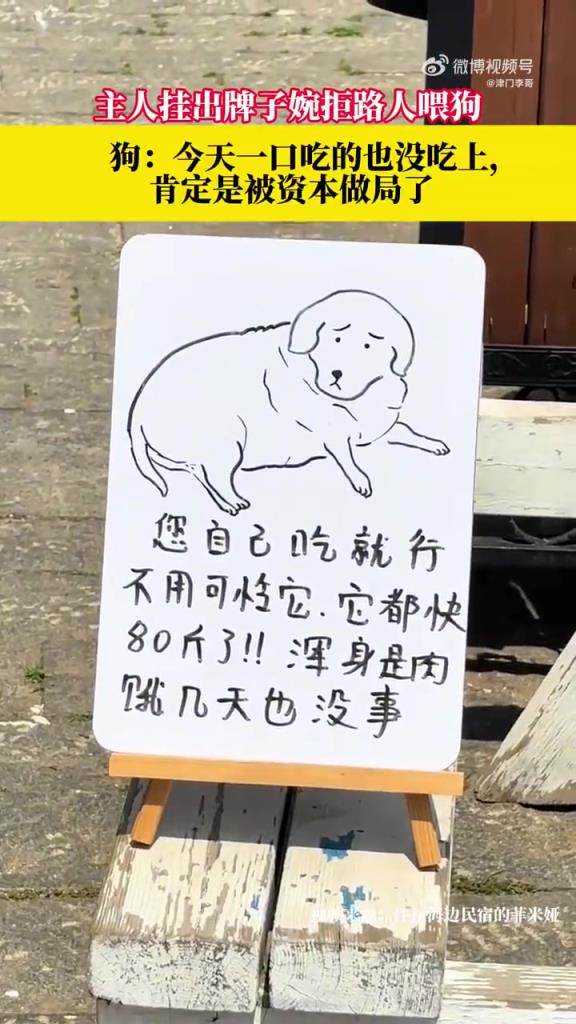 微博视频号
@津门李哥
主人挂出牌子婉拒路人喂狗
狗：今天一口吃的也没吃上，
肯定是被资本做局了
您自己吃就行
不用可怜它、它都快
80斤了!! 浑身是肉
饿几天也没事
海边民宿的菲米娅